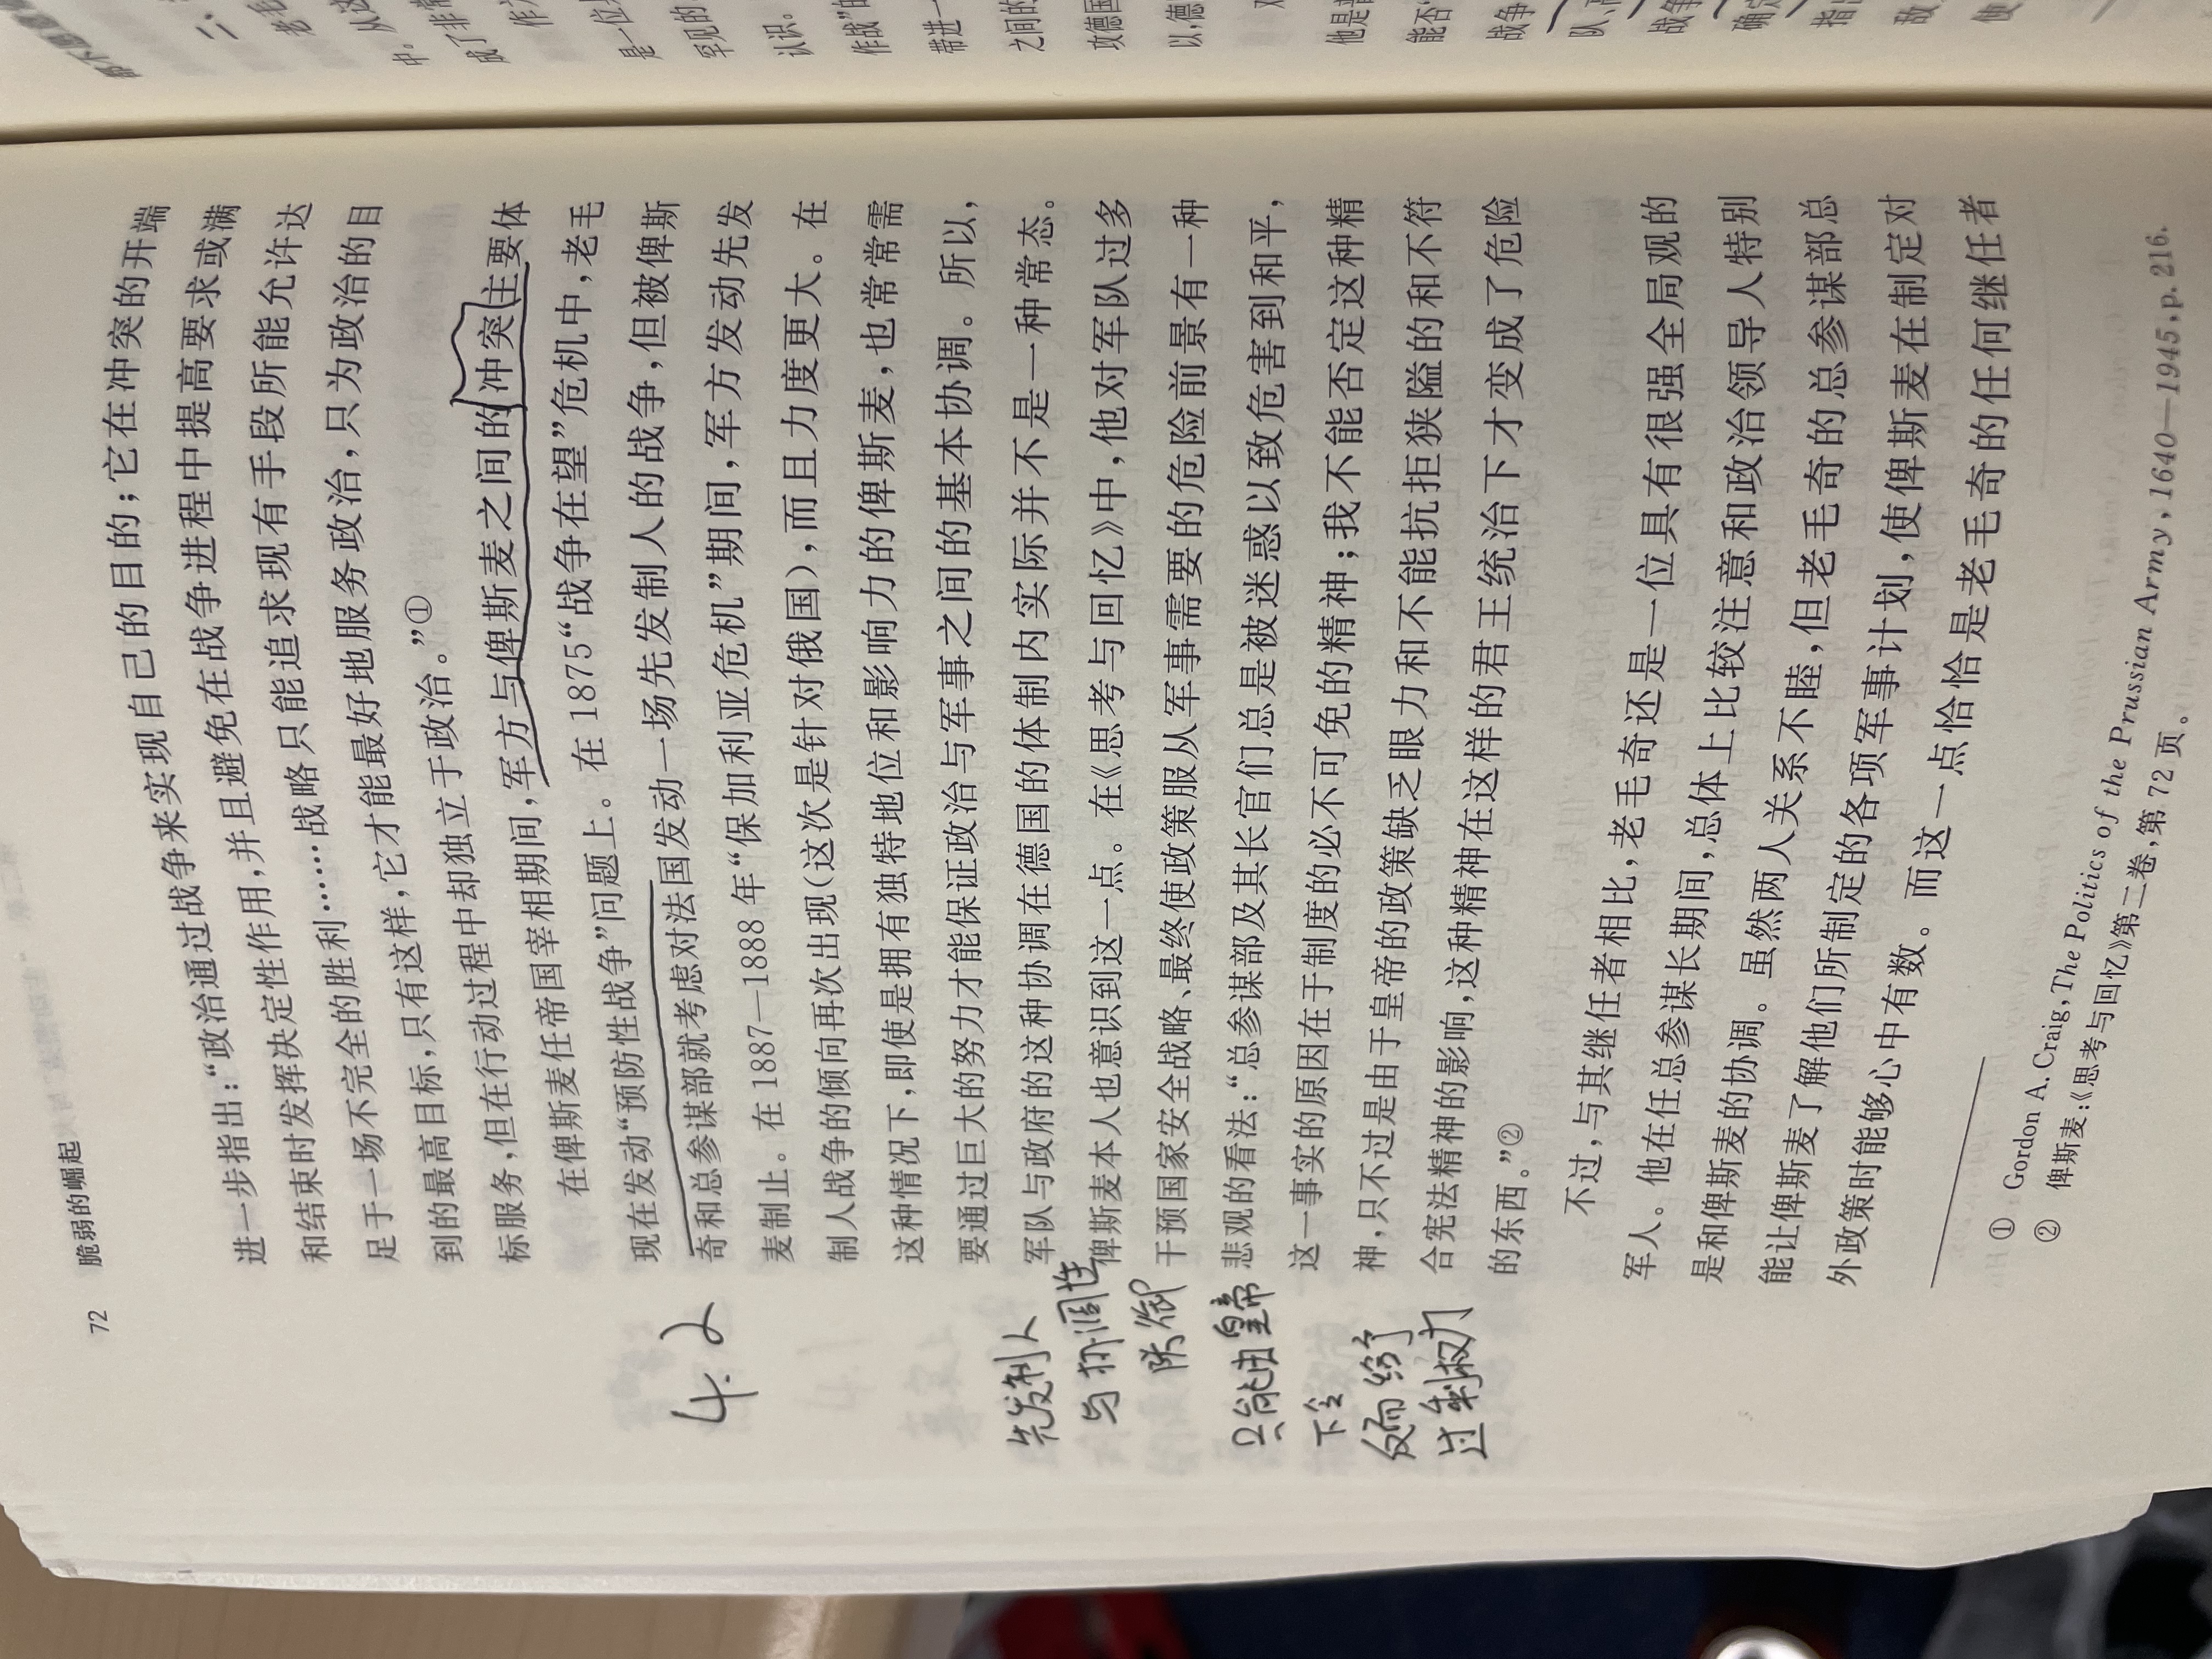 72 脆弱的崛起
进一步指出：“政治通过战争来实现自己的目的；它在冲突的开端
和结束时发挥决定性作用，并且避免在战争进程中提高要求或满
足于一场不完全的胜利……战略只能追求现有手段所能允许达
到的最高目标，只有这样，它才能最好地服务政治，只为政治的目
标服务，但在行动过程中却独立于政治。”①
在俾斯麦任帝国宰相期间，军方与俾斯麦之间的冲突主要体
现在发动“预防性战争”问题上。在1875“战争在望”危机中，老毛
奇和总参谋部就考虑对法国发动一场先发制人的战争，但被俾斯
麦制止。在1887—1888年“保加利亚危机”期间，军方发动先发
制人战争的倾向再次出现（这次是针对俄国），而且力度更大。在
这种情况下，即使是拥有独特地位和影响力的俾斯麦，也常常需
要通过巨大的努力才能保证政治与军事之间的基本协调。所以，
军队与政府的这种协调在德国的体制内实际并不是一种常态。
俾斯麦本人也意识到这一点。在《思考与回忆》中，他对军队过多
干预国家安全战略、最终使政策服从军事需要的危险前景有一种
悲观的看法：“总参谋部及其长官们总是被迷惑以致危害到和平，
这一事实的原因在于制度的必不可免的精神；我不能否定这种精
神，只不过是由于皇帝的政策缺乏眼力和不能抗拒狭隘的和不符
合宪法精神的影响，这种精神在这样的君王统治下才变成了危险
的东西。”②
不过，与其继任者相比，老毛奇还是一位具有很强全局观的
军人。他在任总参谋长期间，总体上比较注意和政治领导人特别
是和俾斯麦的协调。虽然两人关系不睦，但老毛奇的总参谋部总
能让俾斯麦了解他们所制定的各项军事计划，使俾斯麦在制定对
外政策时能够心中有数。而这一点恰恰是老毛奇的任何继任者
① Gordon A. Craig, The Politics of the Prussian Army, 1640—1945, p. 216.
② 俾斯麦：《思考与回忆》第二卷，第72页。
4.2
先发制人
与协调性
防御
只能由皇帝
下令
反而给予
过剩权力
二、
老毛
中。从这
成了非常
作为
是一位
罕见的
认识。
作战”的
带进一
之间的
攻德国
以，德
他是普
能否
战争
队、高
战争
确定
指出
敌
使